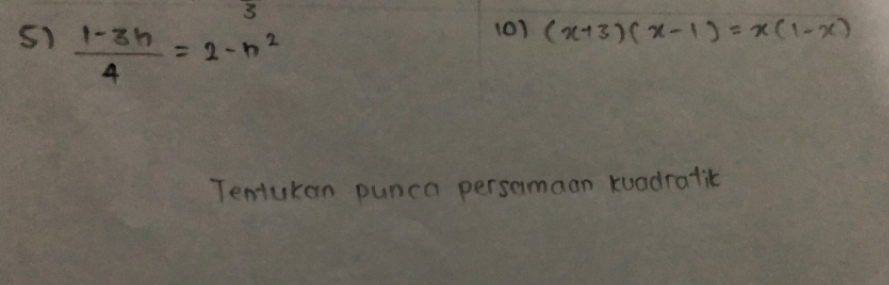 3
5) 1-3h/4 = 2-h²
10) (x+3)(x-1) = x(1-x)
Tentukan punca persamaan kuadratik